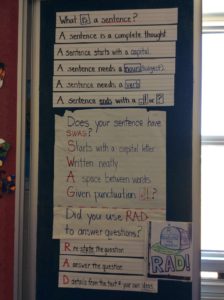 What is a sentence?
A sentence is a complete thought
A sentence starts with a capital.
A sentence needs a noun (subject).
A sentence needs a verb
A sentence ends with a . ! or ?
Does your sentence have
SWAG?
Starts with a capital letter
Written neatly
A space between words
Given punctuation .!?
Did you use RAD
to answer questions?
Re-state the question
Answer the question
Details from the text & your own ideas.
RAD!